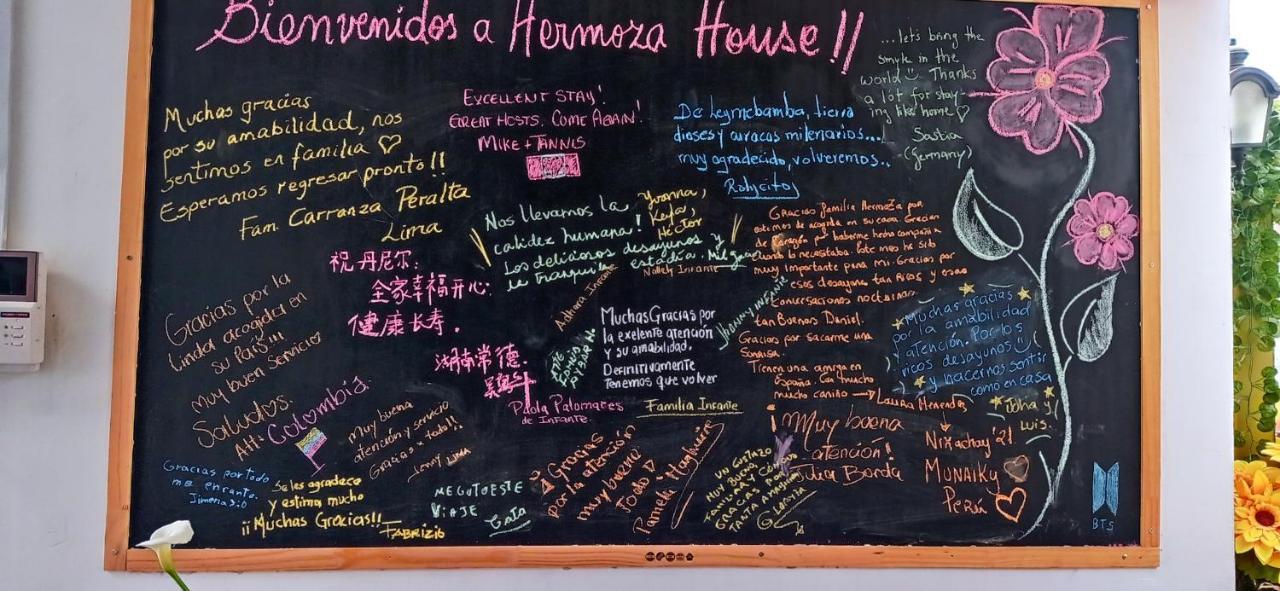 Bienvenidos a Hermoza House!!
Muchas gracias
por su amabilidad, nos
sentimos en familia ♡
Esperamos regresar pronto!!
Fam. Carranza Peralta
Lima
EXCELLENT STAY!
GREAT HOSTS. COME AGAIN!
MIKE + TANNIS
De Leymebamba, tierra
dioses y curacas milenarios...
muy agradecido, volveremos..
Ralycitos
...let's bring the
smyle in the
world Thanks
a lot for stay-
ing like home ♡
Saskia
(Germany)
Nos llevamos la
calidez humana!
Los deliciosos desayunos y
la tranquila estadía. Mil
Yvonna,
Keyla,
Héctor
祝丹尼尔:
全家幸福开心.
健康长寿.
湖南常德.
Gracias por la
linda acogida en
su país!!!
muy buen servicio
Saludos.
Att: Colombia.
Gracias familia Hermoza por
de corazón por haberme hecho compañía
cuando lo necesitaba. Este mes ha sido
muy importante para mi. Gracias por
esos desayunos tan ricos y esas
conversaciones nocturnas
tan buenas Daniel.
Gracias por sacarme una
sonrisa.
Tienen una amiga en
España. Con mucho
mucho cariño → Laura Menendez
Nolely Infante
Ashara Infante
Jhanny Infante
Muchas Gracias por
la exelente atención
y su amabilidad,
Definitivamente
Tenemos que volver
Paola Palomares
de Infante.
Familia Infante
Muchas gracias
por la amabilidad
y atención. Por los
ricos desayunos
y hacernos sentir
como en casa
Joha y
Luis.
Muy buena
atención y servicio
Gracias x todo!!
Jenny Lima
Gracias por todo
me encanto.
Jimena :0
Se les agradece
y estima mucho
¡¡Muchas Gracias!!
FABRIZIO
ME GUTO ESTE
VIAJE
Gata
Gracias
por la atención
muy bueno
todo
Pamela Haguire
UN GUSTAZO
MUY BUENO,
FAMILIAR Y CÓMODO
GRACIAS POR
TANTA AMABILIDAD
Muy buena
atención!
Julia Borda
Nixachay '21
MUNAIKY
Perú
BTS